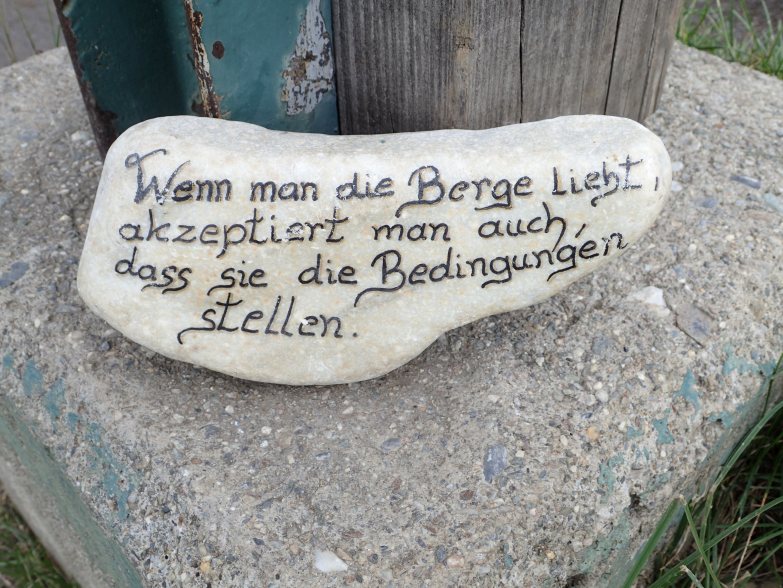 Wenn man die Berge liebt,
akzeptiert man auch,
dass sie die Bedingungen
stellen.